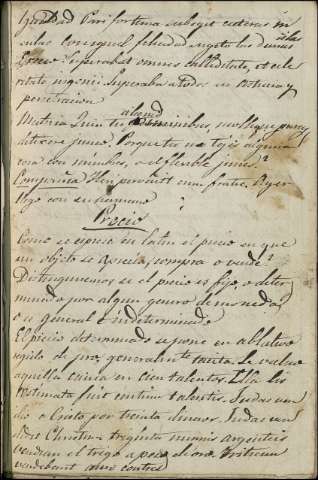 igualdad Pari fortuna subegit ceteras in
sulas Con igual felicidad sujeto las demas islas
Superabat omnes calliditate, et cele
ritate ingenii Superaba a todos en astucia y
penetracion
Materia
diterene junco? Porque tu no tejes alguna
cosa con mimbres, o el flexible junco?
Compañia Heri cum fratre. Ayer
llego con su hermano
Precio
Como se espresa en latin el precio en que
un objeto se aprecia, compra o vende?
Distinguiremos si el precio es fijo, o deter
minado por algun genero de monedas,
o en general é indeterminado
El precio determinado se pone en ablativo
regido de pro, generalmente tacita. Se valuo
aquella causa en cien talentos. Illa lis
æstimata fuit centum talentis. Judas ven
dio a Cristo por treinta dineros. Judas ven
didit Christum triginta nummis argenteis
vendian el trigo a peso de oro. Triticum
vendebant auro contra